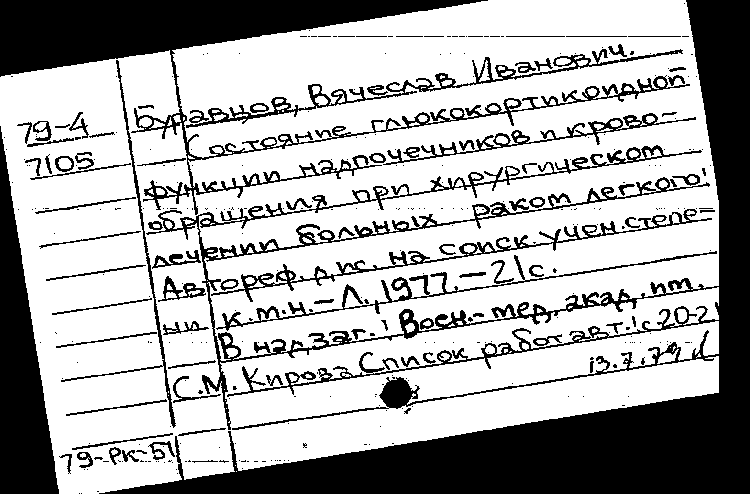 79-4 Буравцов, Вячеслав Иванович.
7105 Состояние глюкокортикоидной
функции надпочечников и крово-
обращения при хирургическом
лечении больных раком легкого:
Автореф. дис. на соиск. учен. степе-
ни к.м.н. - Л., 1977. - 21 с.
В надзаг.: Воен.-мед. акад. им.
С.М. Кирова. Список работ авт.: с. 20-21
13.7.79
79-РК-51